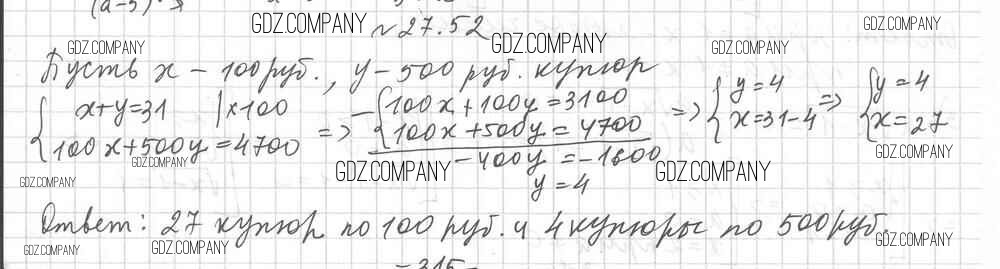 (a-5)
GDZ.COMPANY №27.52 GDZ.COMPANY
GDZ.COMPANY GDZ.COMPANY GDZ.COMPANY
Пусть x – 100 руб., y – 500 руб. купюр
{ x+y=31 | ×100 100x+500y=4700 => – { 100x+100y=3100 100x+500y=4700 => { y=4 x=31-4 => { y=4 x=27
–400y = –1600
y = 4
GDZ.COMPANY GDZ.COMPANY GDZ.COMPANY GDZ.COMPANY GDZ.COMPANY
Ответ: 27 купюр по 100 руб. и 4 купюры по 500 руб.
GDZ.COMPANY GDZ.COMPANY GDZ.COMPANY
– 315 –